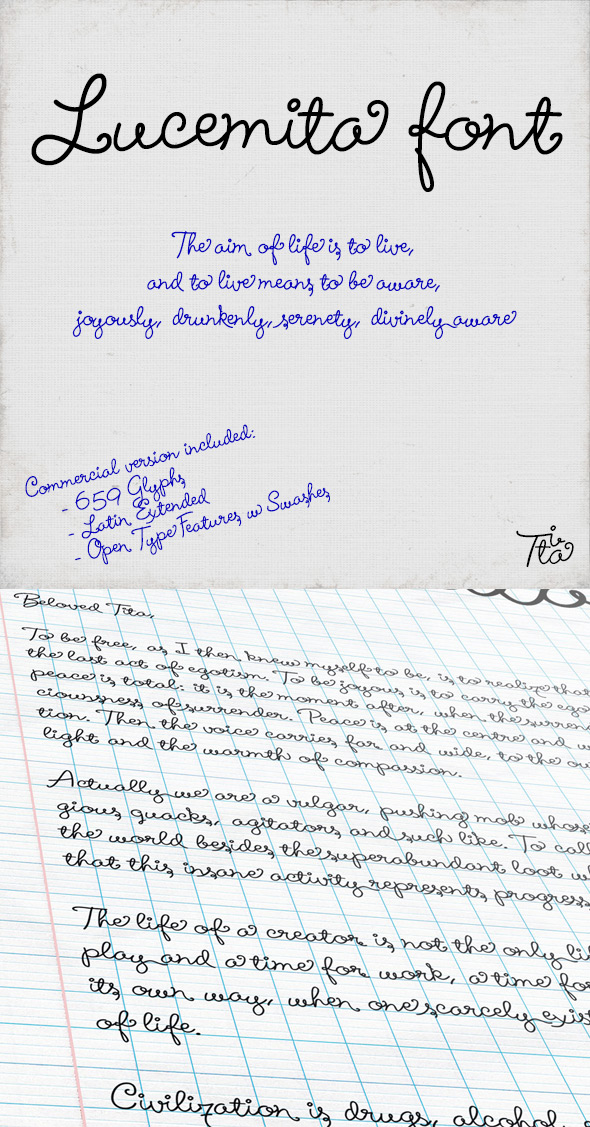 Lucemita font
The aim of life is to live,
and to live means to be aware,
joyously, drunkenly, serenety, divinely aware
Commercial version included:
- 659 Glyphs
- Latin Extended
- Open Type Features w Swashes
Tita
Beloved Tita,
To be free, as I then knew myself to be, is to realize that
the last act of egotism. To be joyous is to carry the ego
peace is total: it is the moment after, when the surren
ciousness of surrender. Peace is at the centre and w
tion. Then the voice carries far and wide, to the ou
light and the warmth of compassion.
Actually we are a vulgar, pushing mob whose
gious quacks, agitators and such like. To call
the world besides the superabundant loot w
that this insane activity represents progress
The life of a creator is not the only li
play and a time for work, a time for
its own way, when one scarcely exist
of life.
Civilization is drugs, alcohol,